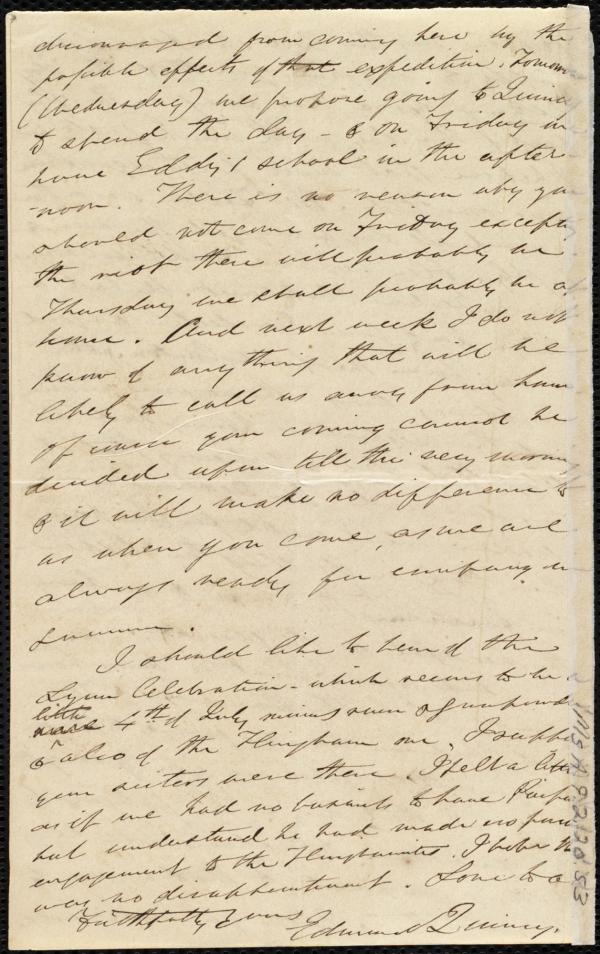 discouraged from coming here by the
possible effects of that expedition. Tomorrow
(Wednesday) we propose going to Quincy
to spend the day - & on Friday we
have Eddy's school in the after
-noon. There is no reason why you
should not come on Friday except
the riot there will probably be
Thursday we shall probably be at
home. And next week I do not
know of anything that will be
likely to call us away from home
Of course your coming cannot be
decided upon till the very morning
& it will make no difference to
us when you come, as we are
always ready for company in
summer.
I should like to hear of the
Lynn Celebration - which seems to be a
little 4th of July minus rum & gunpowder
& also of the Hingham one. I suppose
your sisters were there. I felt a little
as if we had no business to have
but understand he had made no
engagement to the Hinghamites. I hope there
was no disappointment. Love to all
Faithfully Yours
Edmund Quincy.
Ms.A.9.2.12.0.53